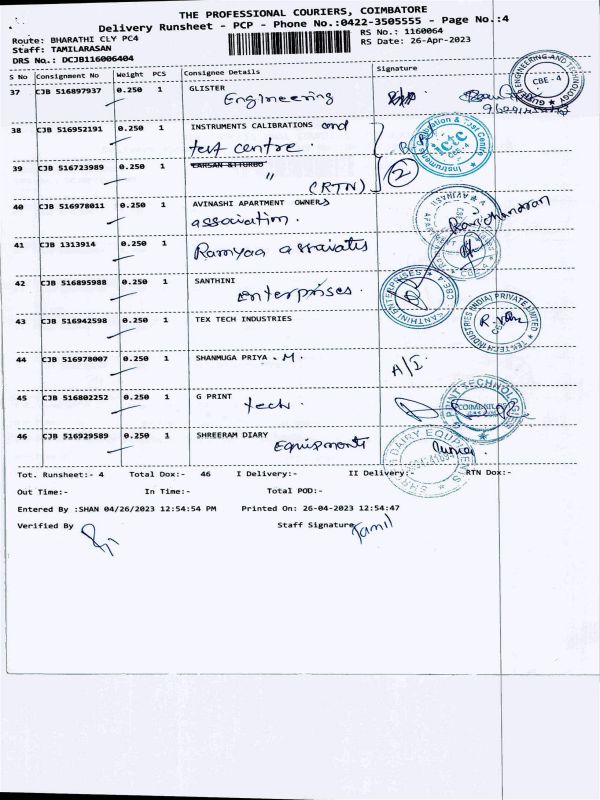 THE PROFESSIONAL COURIERS, COIMBATORE
Delivery Runsheet - PCP - Phone No.:0422-3505555 - Page No.:4
Route: BHARATHI CLY PC4
RS No.: 1160064
Staff: TAMILARASAN
RS Date: 26-Apr-2023
DRS No.: DCJB116006404
S No Consignment No Weight PCS Consignee Details Signature
37 CJB 516897937 0.250 1 GLISTER
Engineering
CBE - 4
38 CJB 516952191 0.250 1 INSTRUMENTS CALIBRATIONS and
test centre.
ictc
CBE-4
39 CJB 516723989 0.250 1 LARSAN &TTURBO
"
(RTN) 2
40 CJB 516978011 0.250 1 AVINASHI APARTMENT OWNERS
association.
Ravichandran
41 CJB 1313914 0.250 1 Ramyaa associates
42 CJB 516895988 0.250 1 SANTHINI
enterprises.
SANTHINI ENTERPRISES CBE-4
43 CJB 516942598 0.250 1 TEX TECH INDUSTRIES
TEX TECH INDUSTRIES (INDIA) PRIVATE LIMITED
44 CJB 516978007 0.250 1 SHANMUGA PRIYA - M.
A/I
45 CJB 516802252 0.250 1 G PRINT
tech.
46 CJB 516929589 0.250 1 SHREERAM DIARY
Equipments
Tot. Runsheet:- 4 Total Dox:- 46 I Delivery:- II Delivery:- RTN Dox:-
Out Time:- In Time:- Total POD:-
Entered By :SHAN 04/26/2023 12:54:54 PM Printed On: 26-04-2023 12:54:47
Verified By Staff Signature Tamil